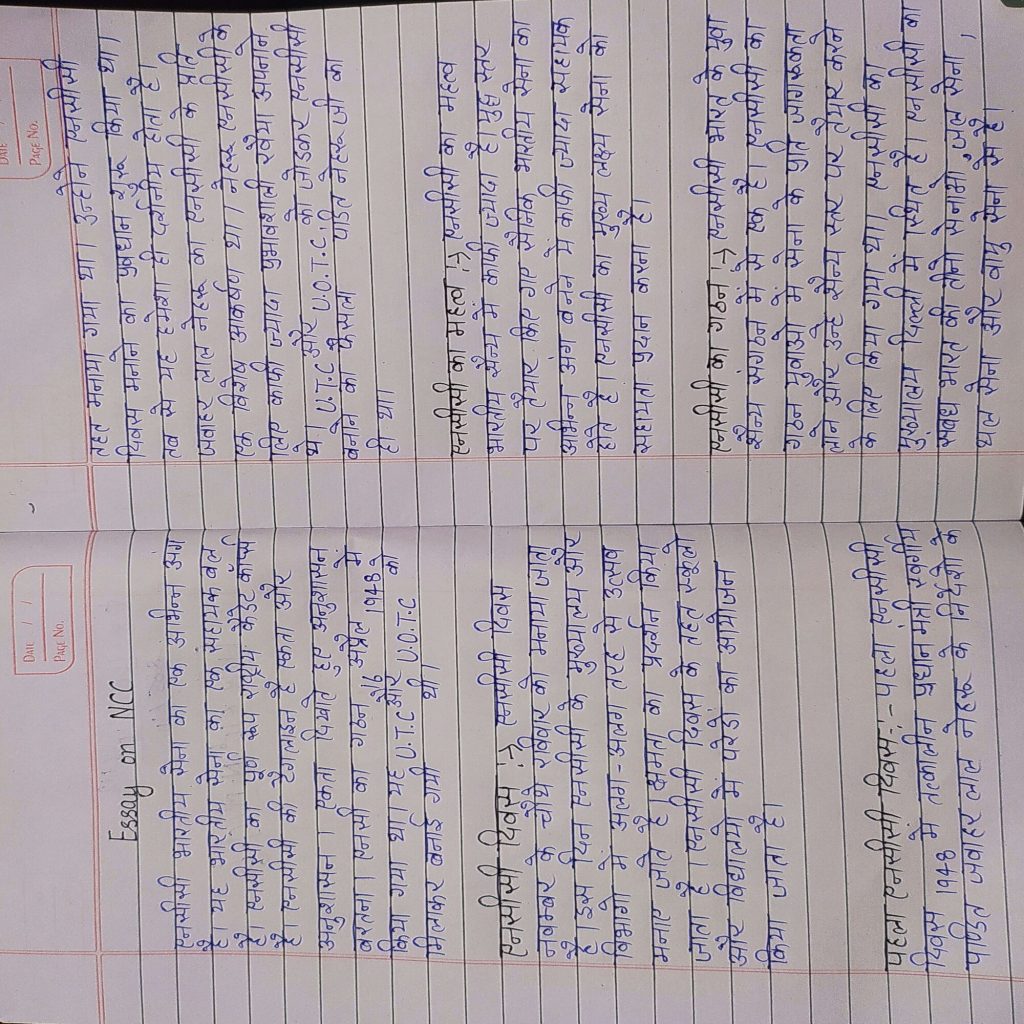 DATE / /
PAGE NO.
Essay on NCC
एनसीसी भारतीय सेना का एक अभिन्न अंग
है। यह भारतीय सेना का एक सहायक बल
है। एनसीसी का पूर्ण रूप राष्ट्रीय कैडेट कॉर्प्स
है। एनसीसी की टैगलाइन है एकता और
अनुशासन। एकता दिखाते हुए अनुशासन
बरतना। एनसी का गठन 16 अप्रैल 1948 में
किया गया था। यह U.T.C और U.O.T.C को
मिलकर बनाई गयी थी।
एनसीसी दिवस :-> एनसीसी दिवस
नवम्बर के चौथे रविवार को मनाया जाता
है। इस दिन एनसीसी के मुख्यालय और
विभागों में अलग-अलग तरह से उत्सव
मनाए जाते है। क्षमता का प्रदर्शन किया
जाता है। एनसीसी दिवस के तहत स्कूलों
और विद्यालयों में परेडों का आयोजन
किया जाता है।
पहला एनसीसी दिवस :- पहला एनसीसी
दिवस 1948 में तत्कालीन प्रधानमंत्री स्वर्गीय
पंडित जवाहर लाल नेहरू के निर्देशों के
DATE /
PAGE NO.
तहत मनाया गया था। उन्होंने एनसीसी
दिवस मनाने का प्रावधान शुरू किया था।
तब से यह हमेशा ही दर्शनीय होता है।
जवाहर लाल नेहरू का एनसीसी के प्रति
एक विशेष आकर्षण था। नेहरू एनसीसी के
लिए काफी ज्यादा प्रभावशाली रवैया अपनाते
थे। U.T.C और U.O.T.C. को जोड़कर एनसीसी
बनाने का फैसला पंडित नेहरू जी का
ही था।
एनसीसी का महत्व :-> एनसीसी का महत्व
भारतीय सैन्य में काफी ज्यादा है। युद्ध स्तर
पर तैयार किए गए सैनिक भारतीय सेना का
अभिन्न अंग बनने में काफी ज्यादा सहायक
होते है। एनसीसी का मुख्य लक्ष्य सेना को
सहायता प्रदान करना है।
एनसीसी का गठन :-> एनसीसी भारत के युवा
सैन्य संगठन में से एक है। एनसीसी का
गठन युवाओं में सेना के प्रति जागरूकता
लाने और उन्हें सैन्य स्तर पर तैयार करने
के लिए किया गया था। एनसीसी का
मुख्यालय दिल्ली में स्थित है। एनसीसी का
संबंध भारत की तीनों सेनाओं, जल सेना,
थल सेना और वायु सेना से है।